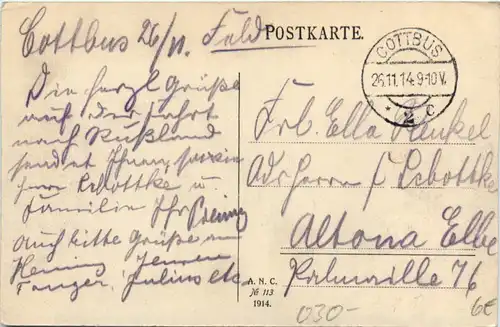 Cottbus 26/11. Feld
POSTKARTE.
COTTBUS
26.11.14.9-10V.
* 2 c
Die herzl Grüße
auf der Fahrt
nach Rußland
sendet Ihnen, sowie
Herrn Schottke u.
Familie Ihr
auch bitte Grüße an
Henning Jensen
Julius etc.
Frl. Ella Henkel
Adr Herrn F Schottke
Altona Elbe
Palmaille 76
A. N. C.
№ 113
1914.
030-
6€